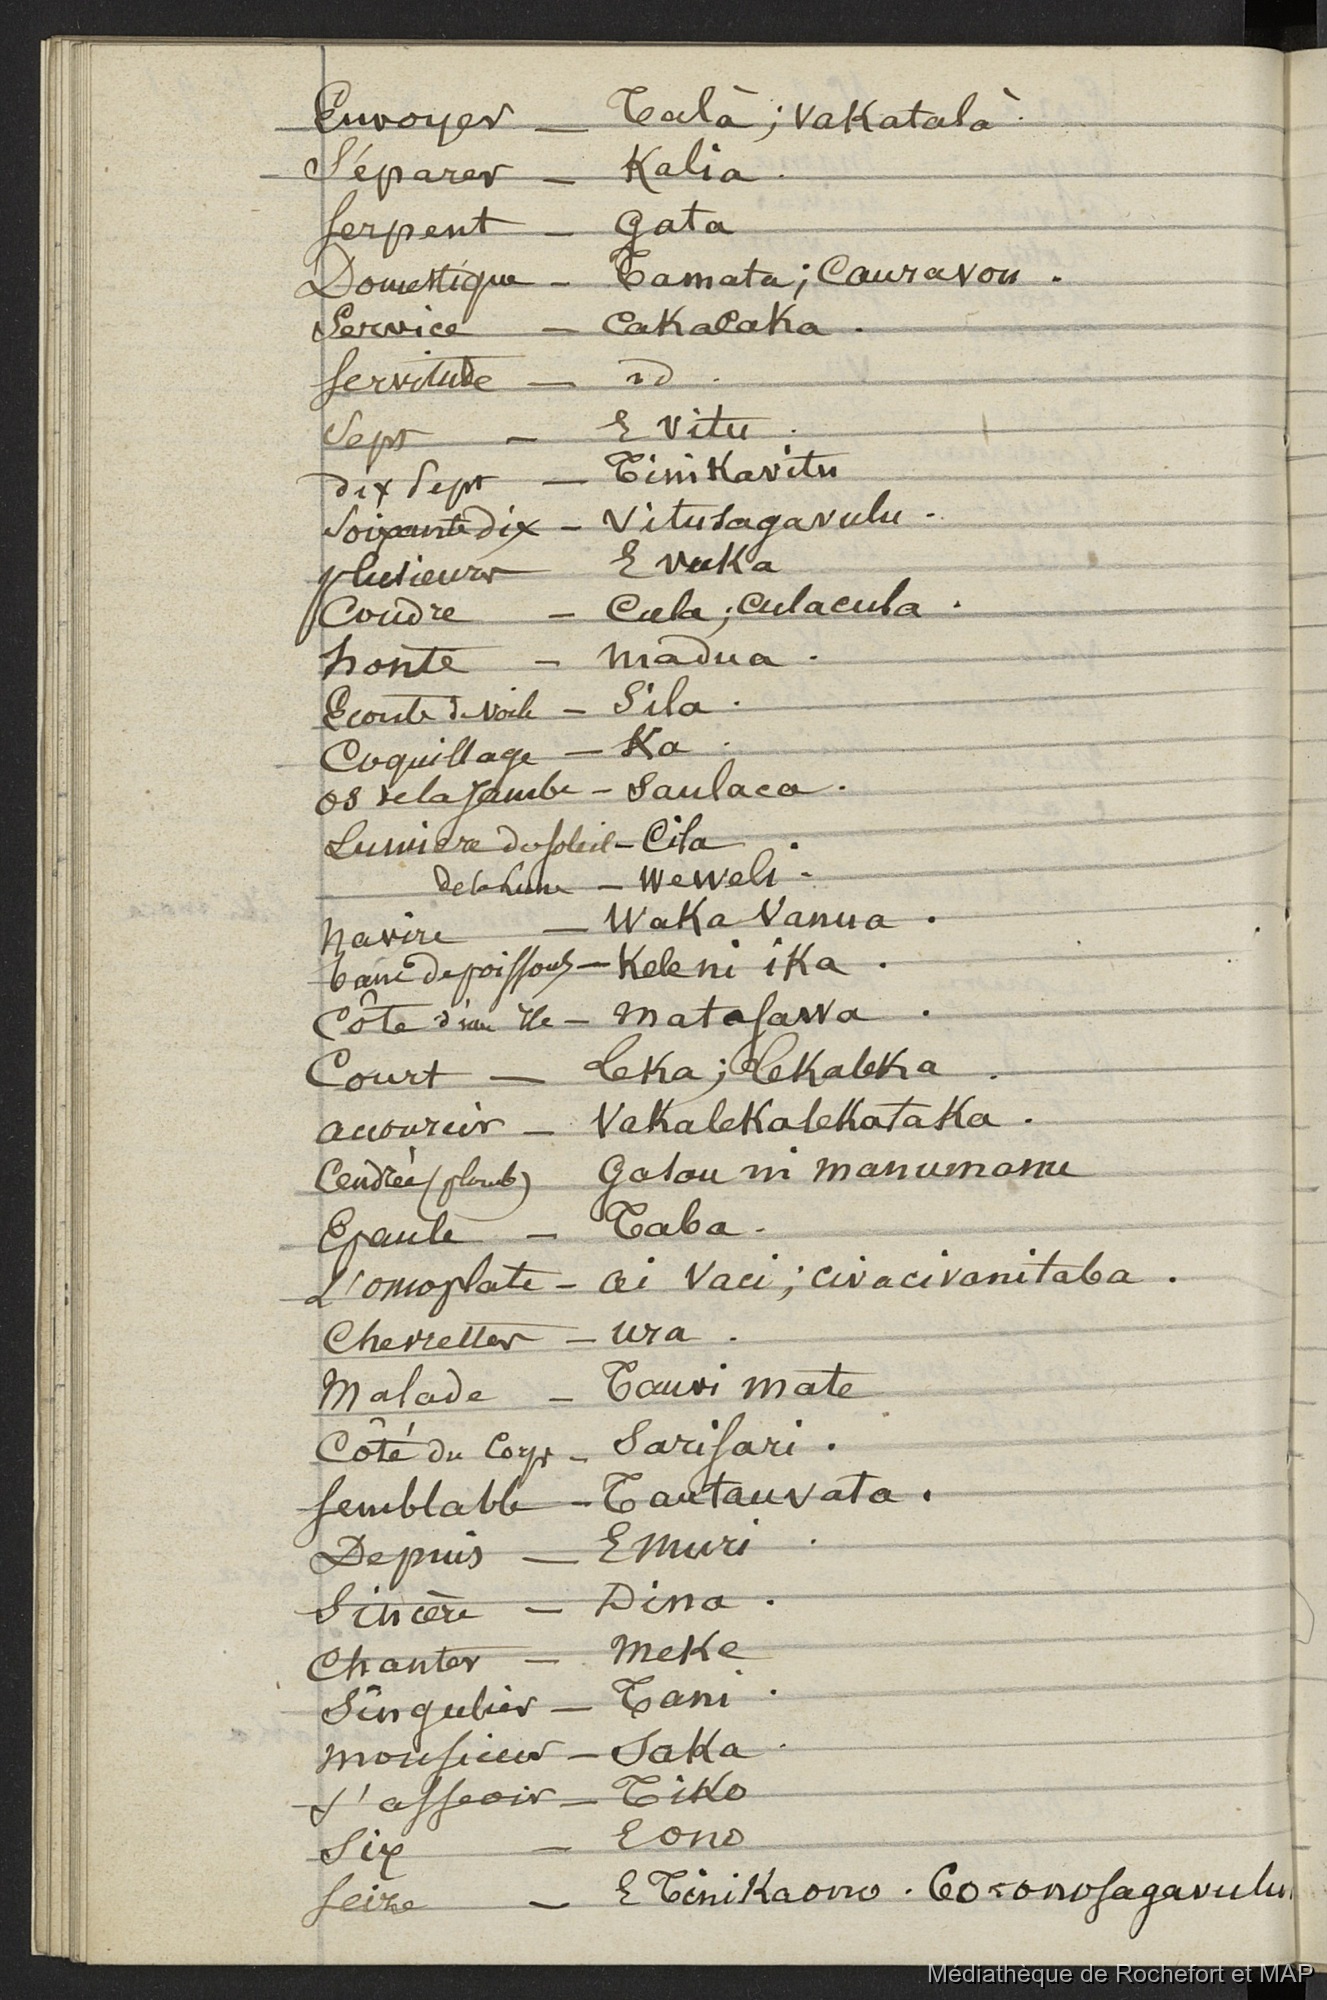 Envoyer — Talà ; vakatalà
Séparer — Kalia .
Serpent — Gata
Domestique — Tamata ; Cauravou .
Service — Cakacaka .
Servitude — id .
Sept — E vitu .
dix Sept — Tinikavitu
Soixante dix — Vitusagavulu .
plusieurs E vuka
Coudre — Cula ; culacula .
honte — madua .
Ecoute de voile — Sila .
Coquillage — Ka .
os de la Jambe — Saulaca .
Lumiere du soleil — Cila .
de la Lune — Weweli .
Navire — Waka Vanua .
banc de poissons — Kele ni ika .
Côte d'une Ile — Matasawa .
Court — Leka ; lekaleka .
accourcir — Vakalekalekataka .
Cendrée (plomb) Gasau ni manumanu
Epaule — Taba .
L'omoplate — ai Vaci ; civacivanitaba .
Chevrettes — ura .
Malade — Tauvi mate
Côté du Corps — Sarisari .
Semblable — Tautauvata .
Depuis — E muri .
Sincère — Dina .
Chanter — Meke
Singulier — Tani .
Monsieur — Saka .
s'asseoir — Tiko
Six — E ono
Seize — E Tinikaono . 60 = onosagavulu
Médiathèque de Rochefort et MAP